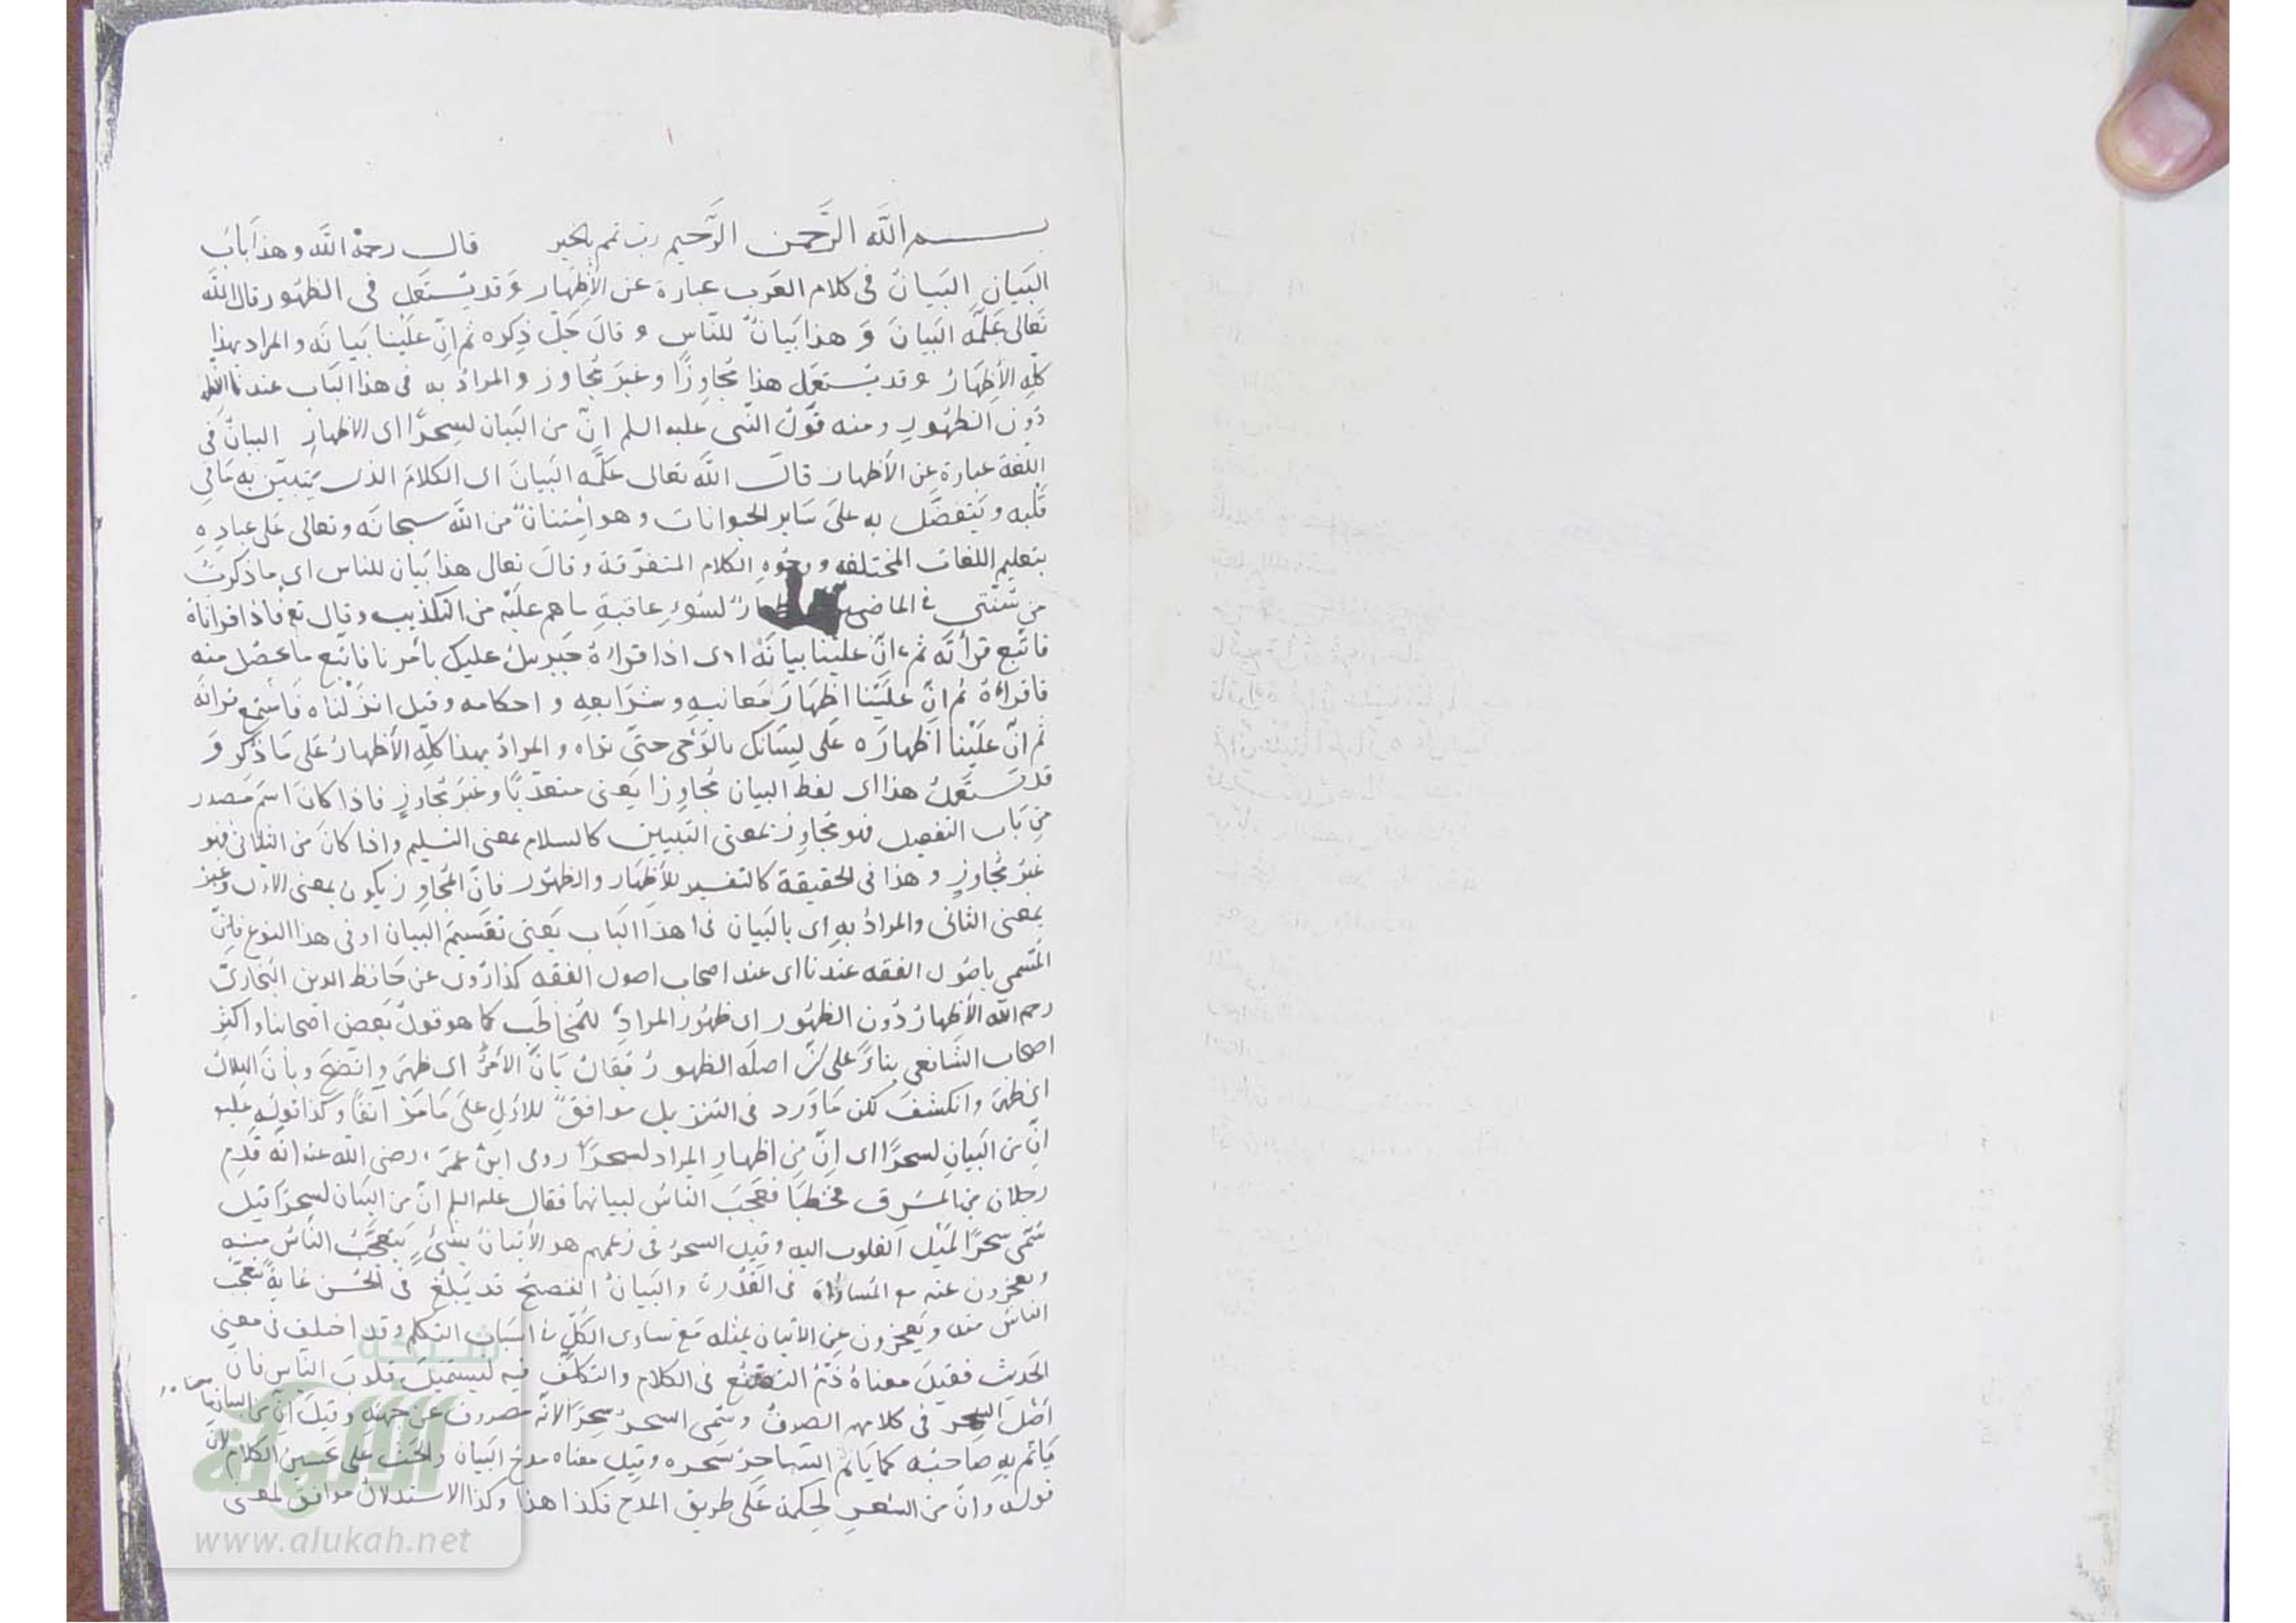 بسم الله الرَّحمن الرَّحيم رب تمم بالخير قال رحمهُ الله وهذا بابُ
البَيان البَيانُ فى كلام العَرب عبارة عن الأِظهار وَقد يُستَعَمل فى الظهُور قال الله
تَعالى عَلَّمَه البَيانَ وَ هذا بَيانٌ للنّاسِ و قالَ جَلّ ذِكره ثم انّ عَلَينا بَيانَه والمراد بهذا
كلِّهِ الأِظهَارُ وقد يُستعمَل هذا مُجاوِزًا وغَيرَ مُجاوز والمرادُ به فى هذا البَاب عندنا
دُونَ الظهُور ومنه قَولُ النّبى عليه السلم انّ من البَيان لسِحرًا اى الاظهار البيانُ فى
اللّغة عبارة عن الأظهار قالَ اللّه تعالى عَلَّمه البَيانَ اى الكلامَ الذى يَتبيّن به مَا فِى
قَلْبه ويَتَفضَّل به علىَ سَاير الحيوانات وهو امْتِنانٌ من اللّه سبحانه وتعالى عَلى عبادِهِ
بتعليم اللغات المختلفه ووجُوهِ الكلام المتفرّقة وقالَ تعالى هذا بَيان للناس اى ما ذكرتُ
مِن سُنّتى فى الماضين لسُوءِ عاقبةِ ما هم علَيْه من التكذيب وقال تع فاذا قراناهُ
فاتّبع قرأنَه ثم انّ علَيْنا بيانَهُ اى اذا قراءهُ جبريلُ عليك بأمرنا فاتّبع ما يحصُل منه
فاقراءهُ ثم انّ علَيْنا اظهَارَ مَعانيهِ وشرَايعِه و احكامه وقيل انزَلْناه فاسْتمع قرانَهُ
ثم انّ علَيْنا اظهارَه على لِسَانك بالوَحى حتّى تراه والمرادُ بهذا كلّه الأظهارُ عَلى مَا ذُكر وَ
قد يُستَعملُ هذا اى لفظ البيان مُجاوِزا يَعنى متعدّيًا وغَيرَ مُجاوزٍ فاذا كانَ اسمَ مَصدر
من بَاب التفعيل فهو مُجاوِز بمعنى التّبيين كالسلام بمعنى التسليم واذا كانَ من الثلاثى فهو
غيرُ مُجاوزٍ وهذا فى الحقيقة كالتفسير للأِظهَار والظهُور فانّ المُجاوِز يكون بمعنى الاول وغَيرَ
بمعنى الثانى والمرادُ بهِ اى بالبَيان فى هذا البَاب يَعنى تقسيمَ البَيان او فى هذا النوع
المُسمى باصُول الفقه عندنا اى عند اصحاب اصول الفقه كذا رُوى عن حَافظ الدين البُخارىّ
رحم الله الأِظهارُ دُون الظهُور اى ظهُور المرادِ للمُخاطَب كما هو قولُ بَعض اصحابنا واكثرِ
اصحاب الشّافعى بناءً على انّ اصله الظهور يُقالُ بَانَ الأمرُ اى ظهرَ واتّضحَ وبانَ الهلالُ
اى ظهرَ وانكشفَ لكن مَا وَرد فى التنزيل موافقٌ للاوّلِ علىَ مَا مَرّ آنفًا وكذا قولُه عليه
انّ من البَيانِ لسحرًا اى انّ من اظهارِ المراد لسحرًا روى ابنُ عمرَ رضى الله عنه انّه قَدِم
رجلان من المَشرق فخَطبَا فعَجبَ النّاسُ لبيانهما فقال عليه السلم انّ من البَيان لسحرًا قيل
سُمّى سحرًا لمَيْل القلوب اليه وقيل السحرُ فى زعمهم هو الأتيانُ بشئٍ يَتعجّبُ النّاسُ مِنه
ويعجزون عنه مع المُساواة فى القُدْرة والبَيانُ الفصيحُ قد يَبلُغُ فى الحُسن غايةً يتعجّب
الناسُ منه ويَعجزون عن الاتيان بمثله مَع تساوى الكلّ فى اسبَاب التكلم وقد اختلف فى معنى
الحَديث فقيلَ معناهُ ذَمُّ التصنّع فى الكلام والتكلّف فيه ليستميلَ قلوبَ النّاس فانّ
اصْلَ السحر فى كلامهم الصرفُ وسُمّى السحرُ سِحرًا لانّه مصروف عن جهته وقيلَ انّ من البيان ما
يَاثم بهِ صَاحبُه كما يَاثم السّاحرُ بسحره وقيل معناه مدحُ البَيان والحثّ على تحسين الكلام لانّ
قوله وانّ من الشعرِ لحِكمة عَلى طريق المدح فكذا هذا وكذا الاستدلالُ موافق لمعنى
شبكة
الألوكة
www.alukah.net